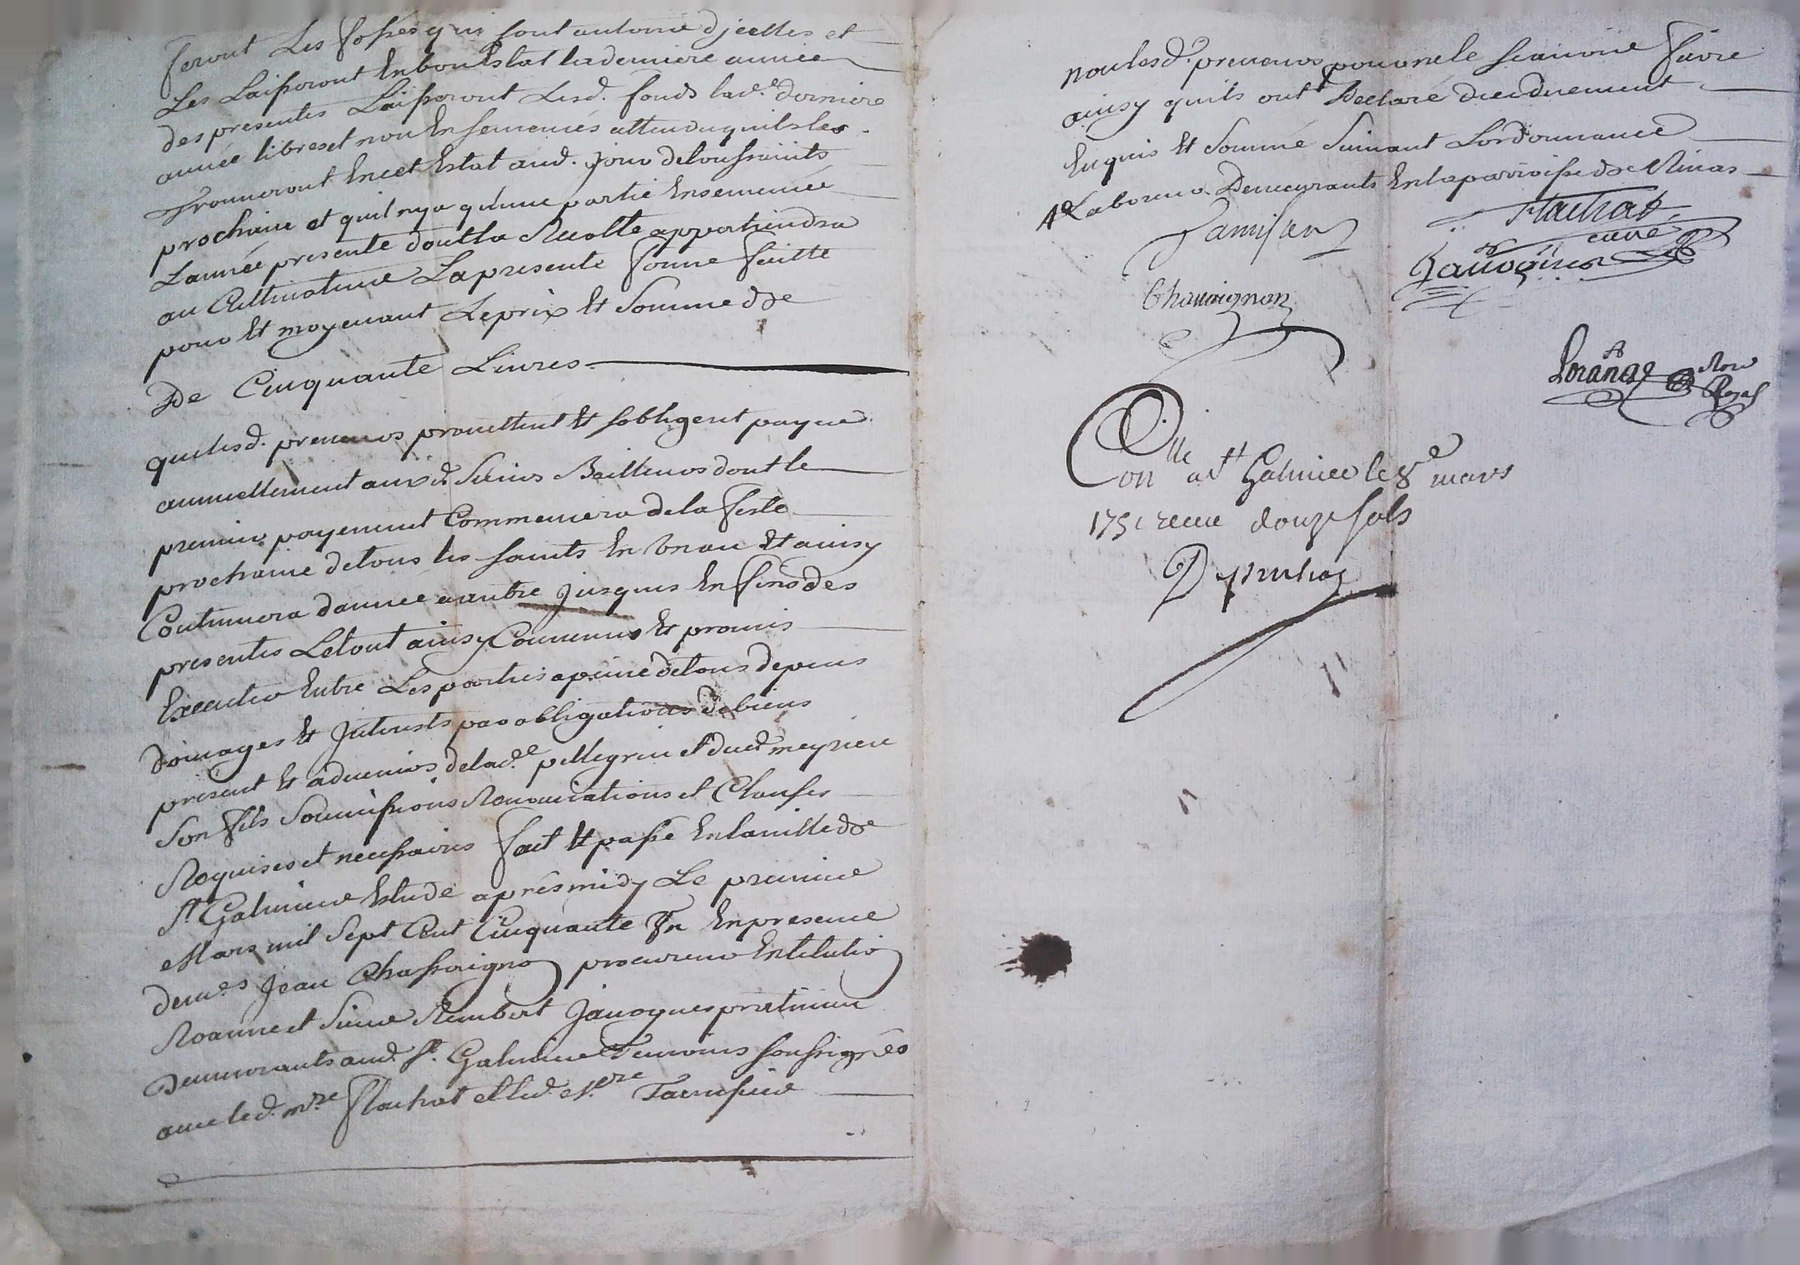 feront les fossés qui sont autour d'jcelles et
Les Laisseront En bon Estat la derniere année
des presentes Laisseront Lesd. fonds lad.e derniere
année libres et non Ensemencés attendu quils les
trouveront En cet Estat aud. jour de toussaints
prochaine et quil ny a qu'une partie Ensemencée
Lannée presente dont la Recolte appartiendra
au Cultivateur La presente ferme faitte
pour Et moyenant Le prix Et Somme de
De Cinquante Livres
que lesd. preneurs promettent Et sobligent payer
annuellement auxd. Sieurs Bailleurs dont le
premier payement Commencera de la feste
prochaine de tous les saints En un an Et ainsy
Continuera dannée a autre jusques En fins des
presentes Le tout ainsy Convenus Et promis
Executer Entre Les parties a peine de tous depens
domages Et jnterests par obligations de biens
present Et advenirs de lad.e pellegrin et dud. meyrieu
Son fils Soumissions Renonciations et Clauses
Requises et necessaires fait Et passé En la ville de
St Galmier Estude aprés midy Le premier
Mars mil Sept Cent Cinquante Un En presence
de m.es Jean Chassaignon procureur En
Roanne et Sieur Rembert Javogues praticien
Demeurants aud. St. Galmier Temoins soussignés
avec led. m.re flachat et led. M.re
non lesd. preneurs pour ne le scavoir faire
ainsy quils ont Declaré duement
Enquis Et Sommé Suivant Lordonnance
Laboureur Demeurants En la parroisse de
flachat
curé
Javogues
Chassaignon
Lorange
Nore
Royal
C.lle
Con a St Galmier le 8e mars
1751 receu douze sols